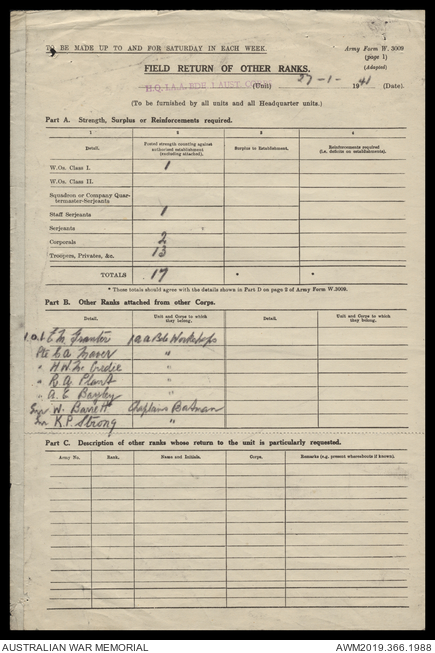 TO BE MADE UP TO AND FOR SATURDAY IN EACH WEEK.
Army Form W. 3009
(page 1)
(Adapted)
FIELD RETURN OF OTHER RANKS.
H.Q. 1 A.A. BDE 1 AUST. (Unit) 27-1-1941 (Date).
(To be furnished by all units and all Headquarter units.)
Part A. Strength, Surplus or Reinforcements required.
1 2 3 4
Detail. Posted strength counting against authorized establishment (excluding attached). Surplus to Establishment. Reinforcements required (i.e. deficits on establishments).
W.Os. Class I. 1
W.Os. Class II.
Squadron or Company Quartermaster-Serjeants
Staff Serjeants 1
Serjeants
Corporals 2
Troopers, Privates, &c. 13
TOTALS 17 * *
* These totals should agree with the details shown in Part D on page 2 of Army Form W.3009.
Part B. Other Ranks attached from other Corps.
Detail. Unit and Corps to which they belong. Detail. Unit and Corps to which they belong.
E. M. Granter 1 a a Bde Workshops
Pte C. A. "
" H W "
" R. A. Plant "
" A. E. Bayley "
W. Barrett Chaplains Batman
K. P. Strong "
Part C. Description of other ranks whose return to the unit is particularly requested.
Army No. Rank. Name and Initials. Corps. Remarks (e.g. present whereabouts if known).
AUSTRALIAN WAR MEMORIAL
AWM2019.366.1988